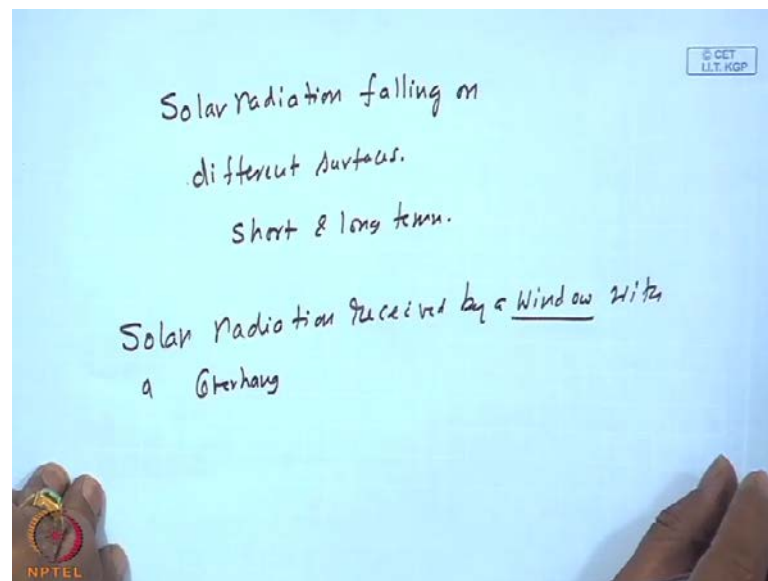 © CET
I.I.T. KGP
Solar radiation falling on
different surfaces.
Short & long term.
Solar radiation received by a Window with
a Overhang
NPTEL